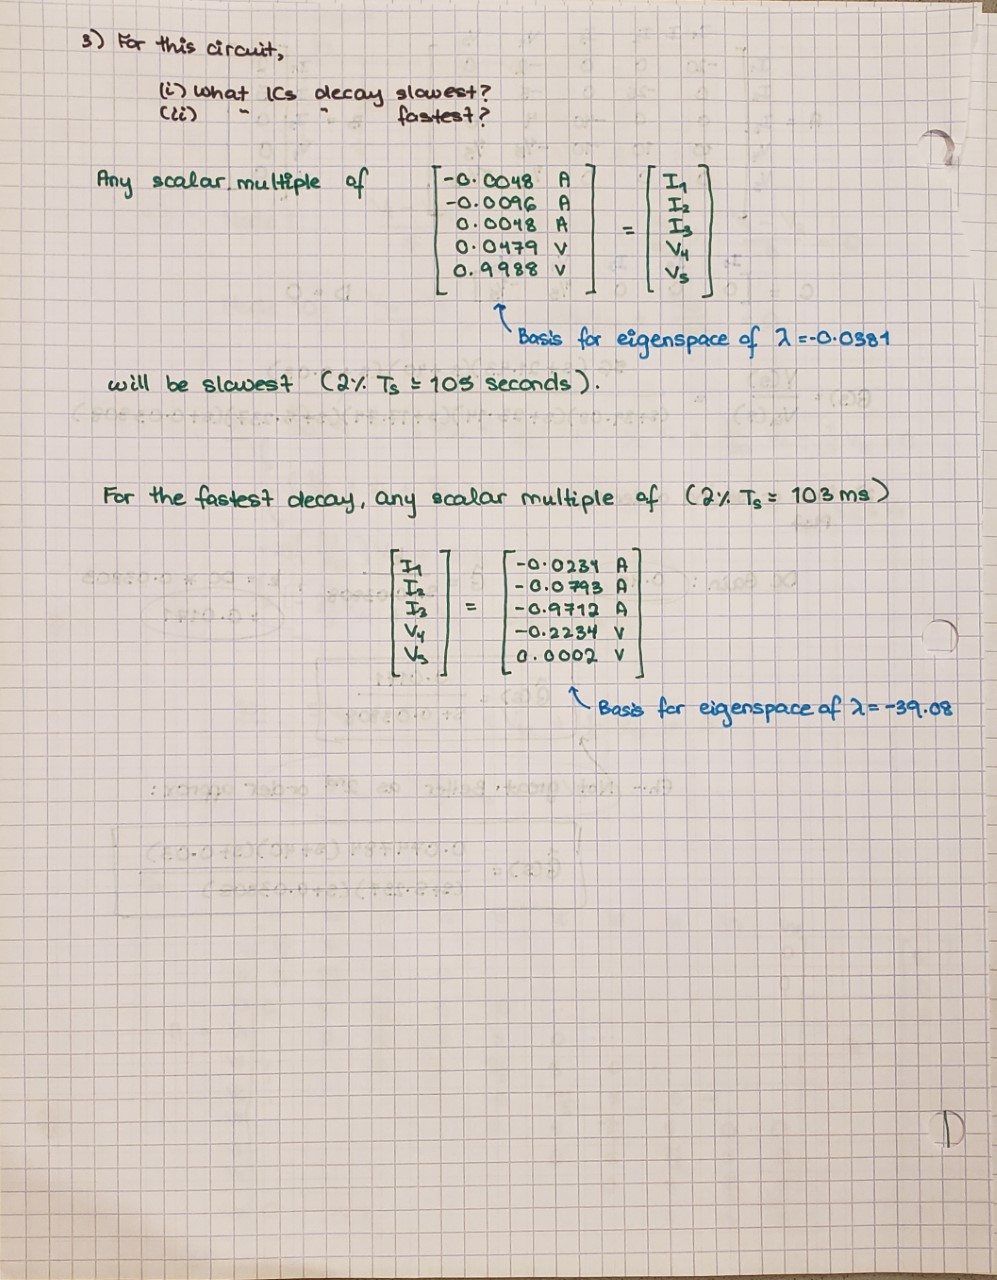 3) For this circuit,
(i) What ICs decay slowest?
(ii) " " fastest?
Any scalar multiple of
-0.0048 A
-0.0096 A
0.0048 A
0.0479 V
0.9988 V
=
I1
I2
I3
V4
V5
Basis for eigenspace of λ=-0.0381
will be slowest (2% Ts ≈ 105 seconds).
For the fastest decay, any scalar multiple of (2% Ts ≈ 103 ms)
I1
I2
I3
V4
V5
=
-0.0234 A
-0.0793 A
-0.9712 A
-0.2234 V
0.0002 V
Basis for eigenspace of λ=-39.08